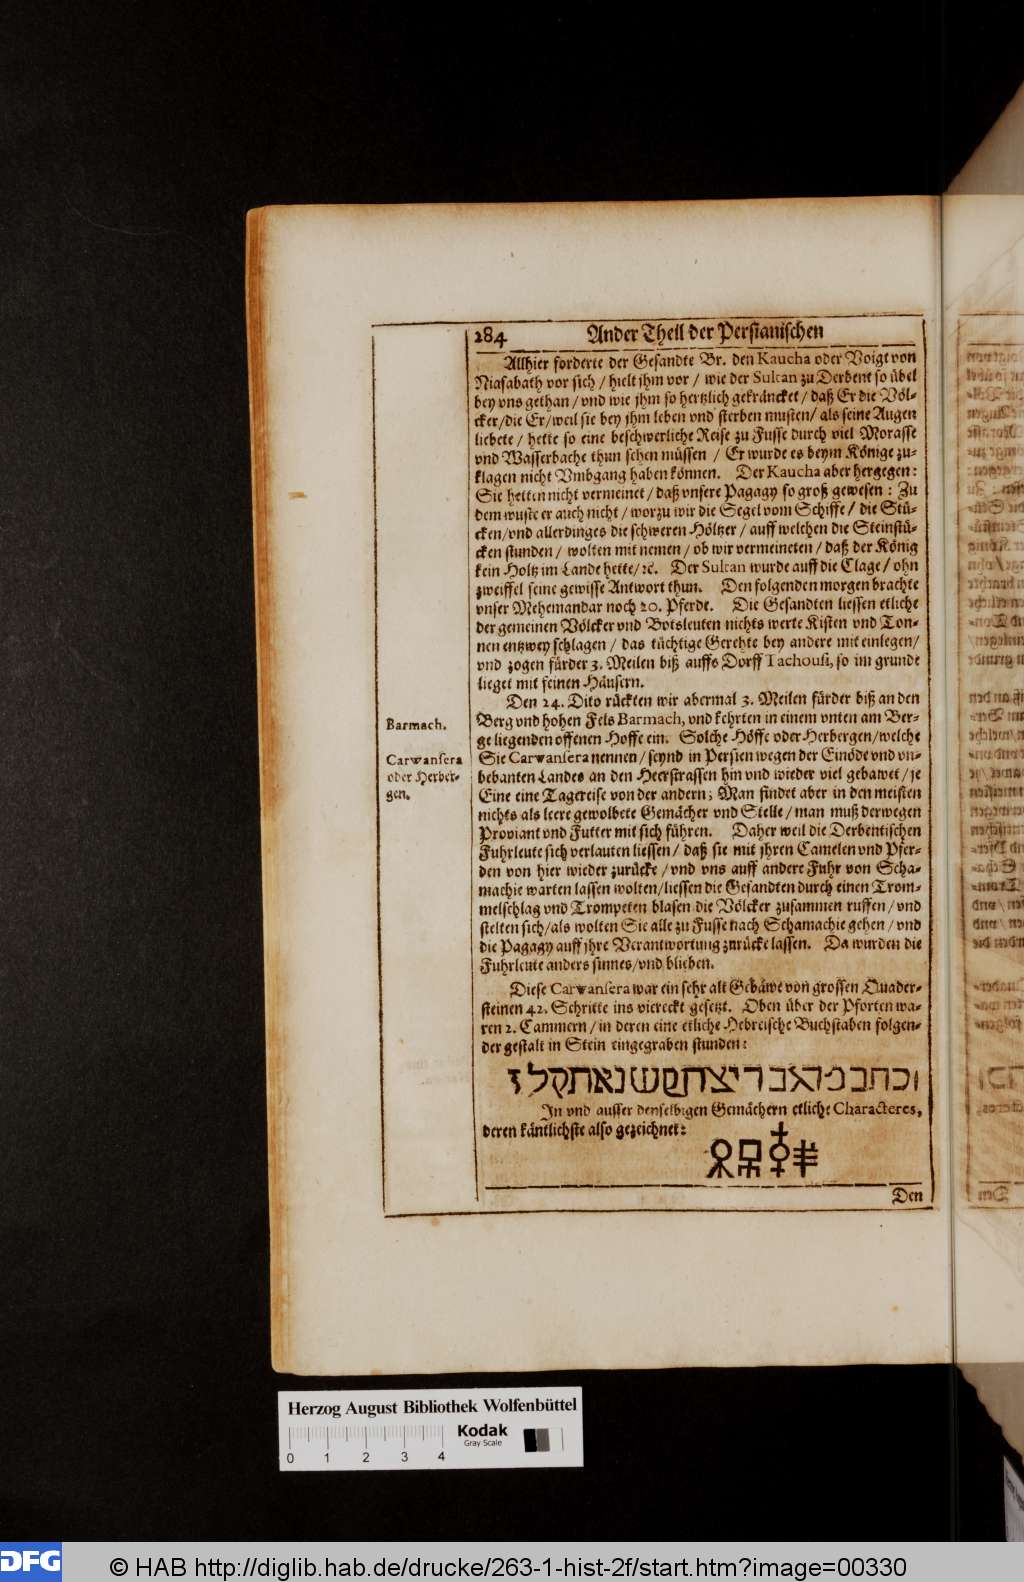 284 Ander Theil der Persianischen
Allhier forderte der Gesandte Br. den Kaucha oder Voigt von
Niasabath vor sich / hielt jhm vor / wie der Sultan zu Derbent so übel
bey vns gethan / vnd wie jhm so hertzlich gekräncket / daß Er die Völ-
cker/die Er/weil sie bey jhm leben vnd sterben musten/ als seine Augen
liebete / hette so eine beschwerliche Reise zu Fusse durch viel Morasse
vnd Wasserbache thun sehen müssen / Er wurde es beym Könige zu-
klagen nicht Vmbgang haben können. Der Kaucha aber hergegen:
Sie hetten nicht vermeinet / daß vnsere Pagagy so groß gewesen : Zu
dem wuste er auch nicht / worzu wir die Segel vom Schiffe / die Stü-
cken/vnd allerdinges die schweren Höltzer / auff welchen die Steinstü-
cken stunden / wolten mit nemen / ob wir vermeineten / daß der König
kein Holtz im Lande hette/ꝛc. Der Sultan wurde auff die Clage / ohn
zweiffel seine gewisse Antwort thun. Den folgenden morgen brachte
vnser Mehemandar noch 20. Pferde. Die Gesandten liessen etliche
der gemeinen Völcker vnd Botsleuten nichts werte Kisten vnd Ton-
nen entzwey schlagen / das tüchtige Gerehte bey andere mit einlegen/
vnd zogen fürder 3. Meilen biß auffs Dorff Tachousi, so im grunde
lieget mit seinen Häusern.
Den 24. Dito rückten wir abermal 3. Meilen fürder biß an den
Barmach.
Berg vnd hohen Fels Barmach, vnd kehrten in einem vnten am Ber-
ge liegenden offenen Hoffe ein. Solche Höffe oder Herbergen/welche
Carwansera
oder Herber-
gen.
Sie Carwansera nennen / seynd in Persien wegen der Einöde vnd vn-
bebanten Landes an den Heerstrassen hin vnd wieder viel gebawet / je
Eine eine Tagereise von der andern; Man findet aber in den meisten
nichts als leere gewolbete Gemächer vnd Stelle / man muß derwegen
Proviant vnd Futter mit sich führen. Daher weil die Derbentischen
Fuhrleute sich verlauten liessen / daß sie mit jhren Camelen vnd Pfer-
den von hier wieder zurücke / vnd vns auff andere Fuhr von Scha-
machie warten lassen wolten/liessen die Gesandten durch einen Trom-
melschlag vnd Trompeten blasen die Völcker zusammen ruffen / vnd
stelten sich/als wolten Sie alle zu Fusse nach Schamachie gehen / vnd
die Pagagy auff jhre Verantwortung zurücke lassen. Da wurden die
Fuhrleute anders sinnes/vnd blieben.
Diese Carwansera war ein sehr alt Gebäwe von grossen Quader-
steinen 42. Schritte ins viereckt gesetzt. Oben über der Pforten wa-
ren 2. Cammern / in deren eine etliche Hebreische Buchstaben folgen-
der gestalt in Stein eingegraben stunden:
In vnd ausser denselbigen Gemächern etliche Characteres,
deren käntlichste also gezeichnet:
Den
Herzog August Bibliothek Wolfenbüttel
0 1 2 3 4
Kodak
Gray Scale
DFG © HAB http://diglib.hab.de/drucke/263-1-hist-2f/start.htm?image=00330